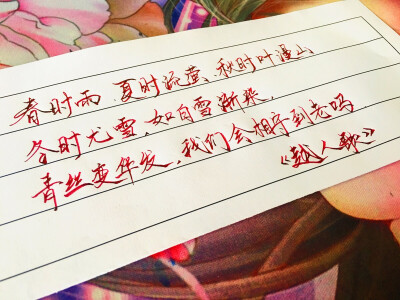 春时雨、夏时流萤、秋时叶漫山
冬时尤雪、如白雪渐染,
青丝变华发,我们会相守到老吗
《越人歌》